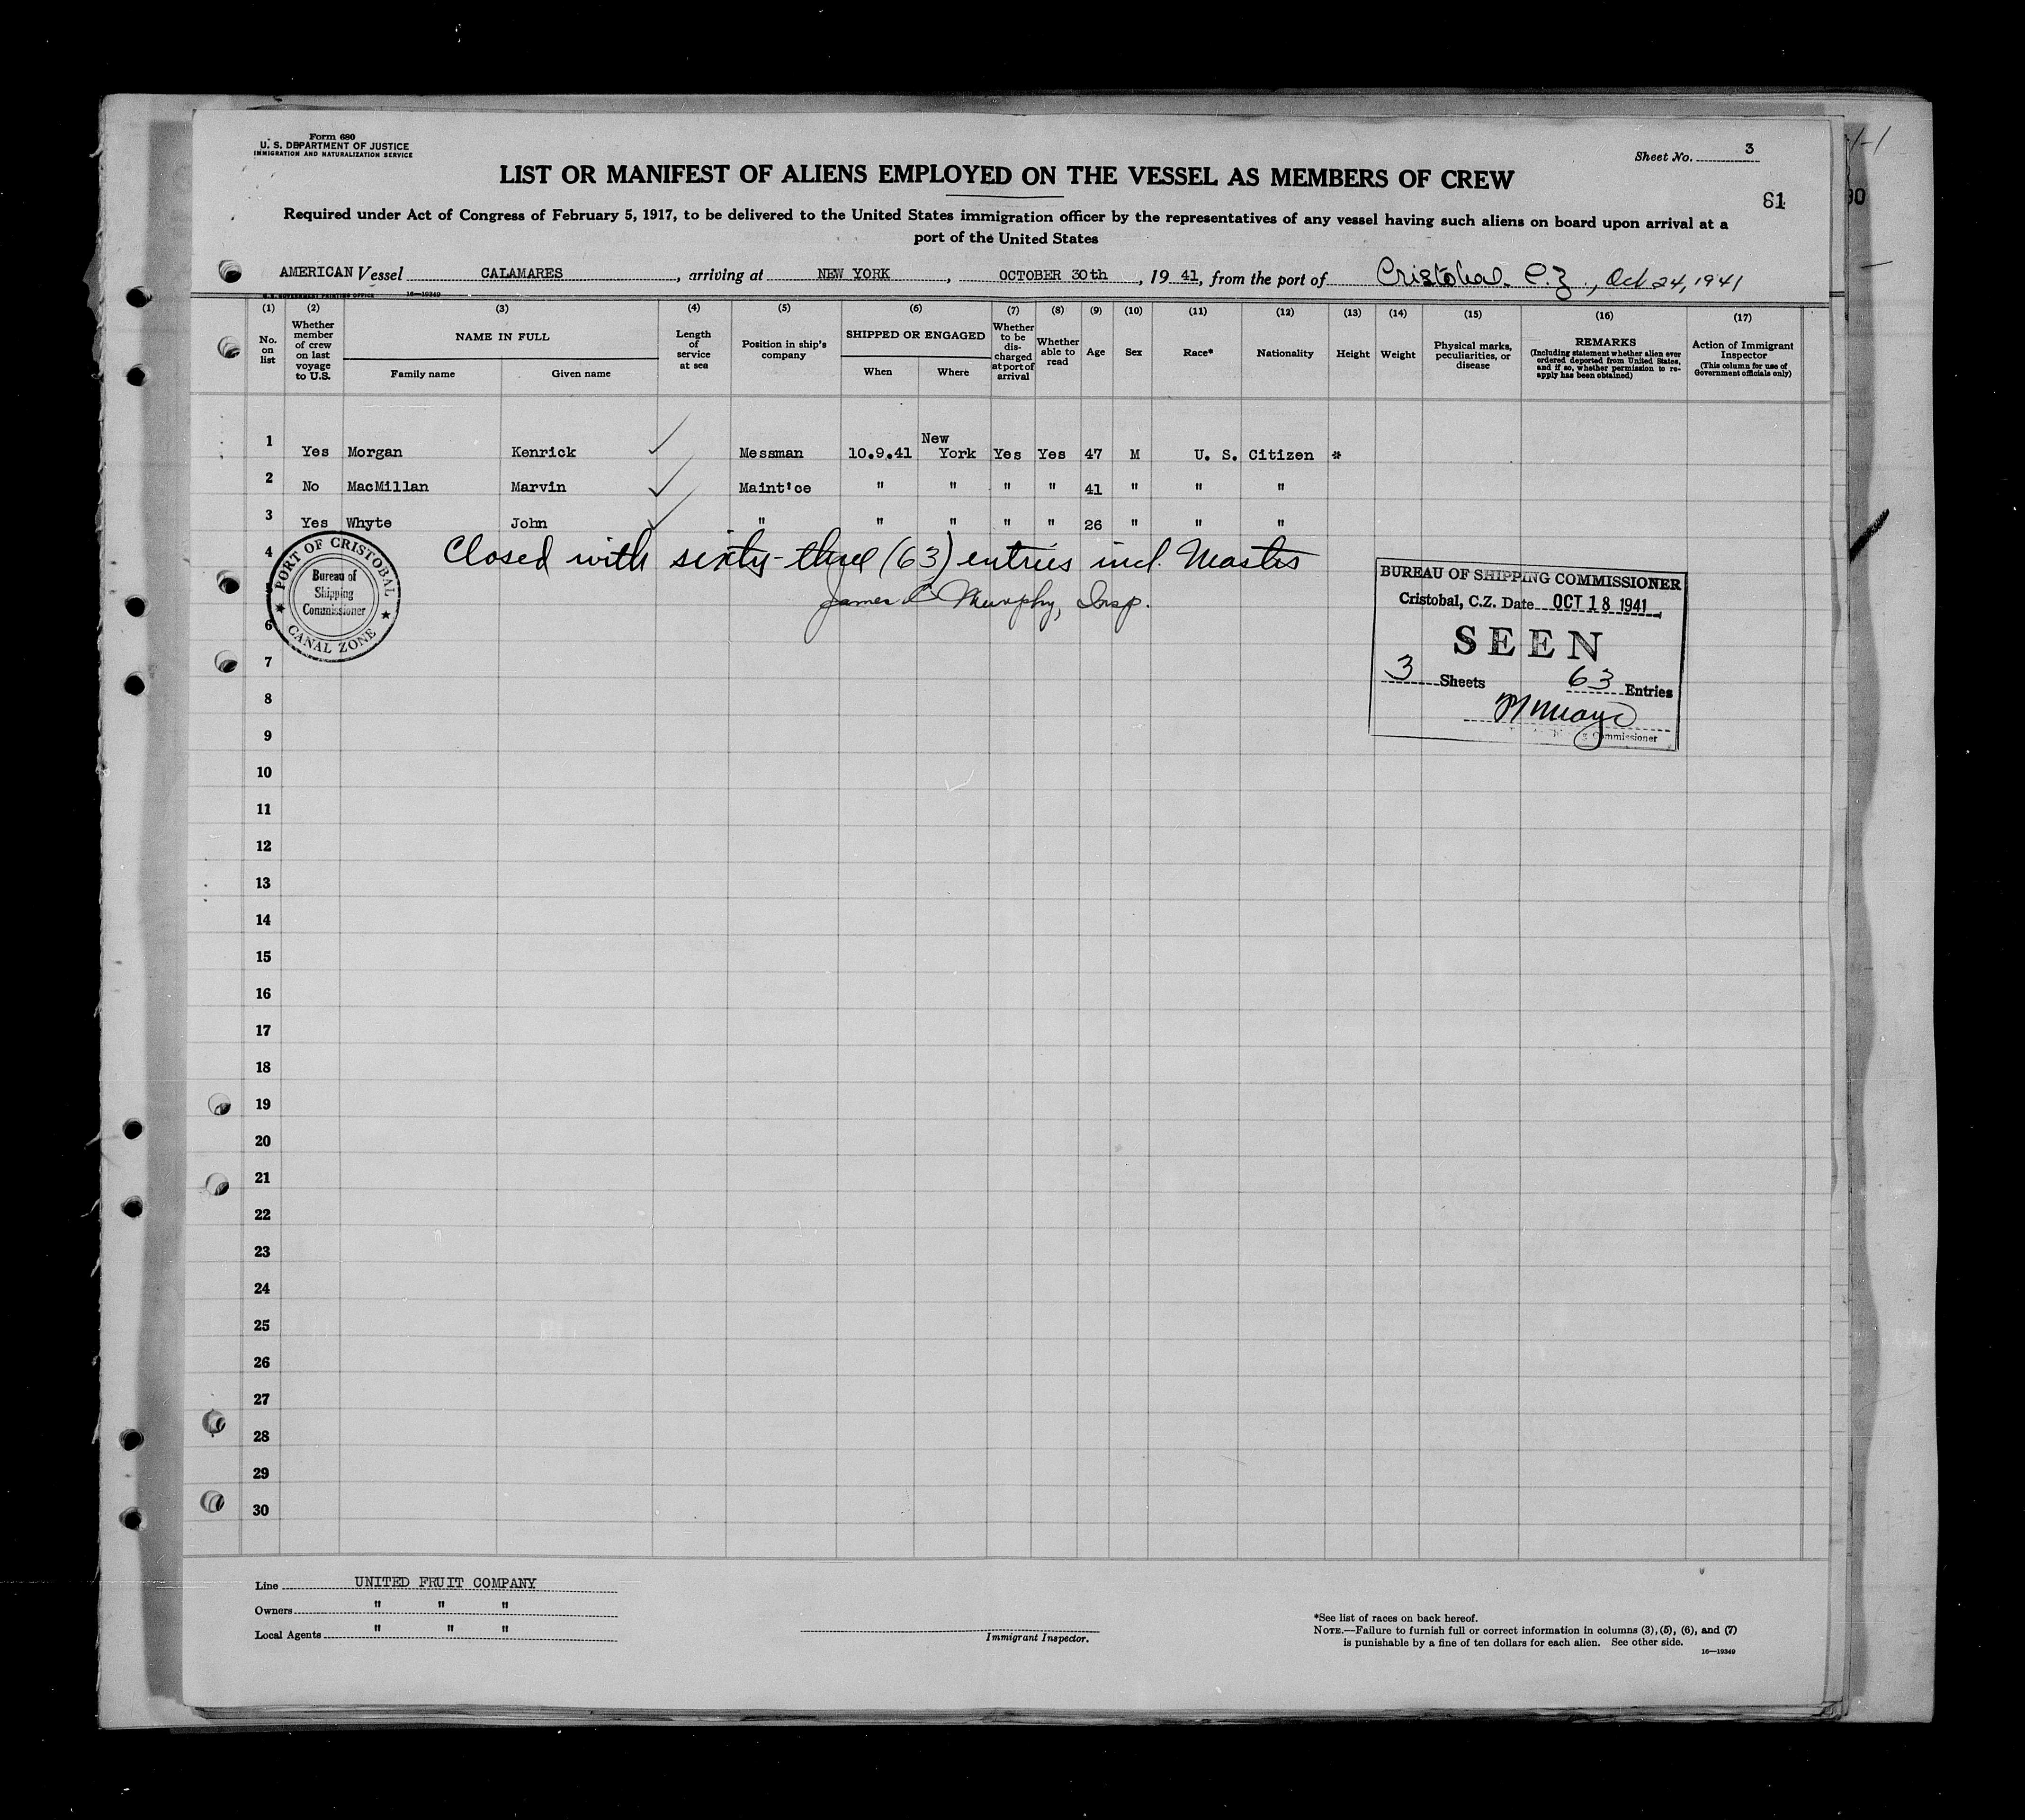 Form 680
U. S. DEPARTMENT OF JUSTICE
IMMIGRATION AND NATURALIZATION SERVICE
Sheet No. 3
LIST OR MANIFEST OF ALIENS EMPLOYED ON THE VESSEL AS MEMBERS OF CREW
61
Required under Act of Congress of February 5, 1917, to be delivered to the United States immigration officer by the representatives of any vessel having such aliens on board upon arrival at a
port of the United States
AMERICAN Vessel CALAMARES, arriving at NEW YORK, OCTOBER 30th, 19 41, from the port of Cristobal. C.Z., Oct 24, 1941
U. S. GOVERNMENT PRINTING OFFICE 16—19349
(1) No. on list
(2) Whether member of crew on last voyage to U.S.
(3) NAME IN FULL Family name Given name
(4) Length of service at sea
(5) Position in ship's company
(6) SHIPPED OR ENGAGED When Where
(7) Whether to be dis-charged at port of arrival
(8) Whether able to read
(9) Age
(10) Sex
(11) Race*
(12) Nationality
(13) Height
(14) Weight
(15) Physical marks, peculiarities, or disease
(16) REMARKS (Including statement whether alien ever ordered deported from United States, and if so, whether permission to re-apply has been obtained)
(17) Action of Immigrant Inspector (This column for use of Government officials only)
1 Yes Morgan Kenrick Messman 10.9.41 New York Yes Yes 47 M U. S. Citizen *
2 No MacMillan Marvin Maint'ce " " " " 41 " " "
3 Yes Whyte John " " " " " 26 " " "
4 Closed with sixty-three (63) entries incl. Master
James C Murphy, Insp.
PORT OF CRISTOBAL
Bureau of
Shipping
Commissioner
CANAL ZONE
BUREAU OF SHIPPING COMMISSIONER
Cristobal, C.Z. Date OCT 18 1941
SEEN
3 Sheets 63 Entries
Commissioner
6
7
8
9
10
11
12
13
14
15
16
17
18
19
20
21
22
23
24
25
26
27
28
29
30
Line UNITED FRUIT COMPANY
Owners " " "
Local Agents " " "
Immigrant Inspector.
*See list of races on back hereof.
NOTE.—Failure to furnish full or correct information in columns (3), (5), (6), and (7)
is punishable by a fine of ten dollars for each alien. See other side.
16—19349